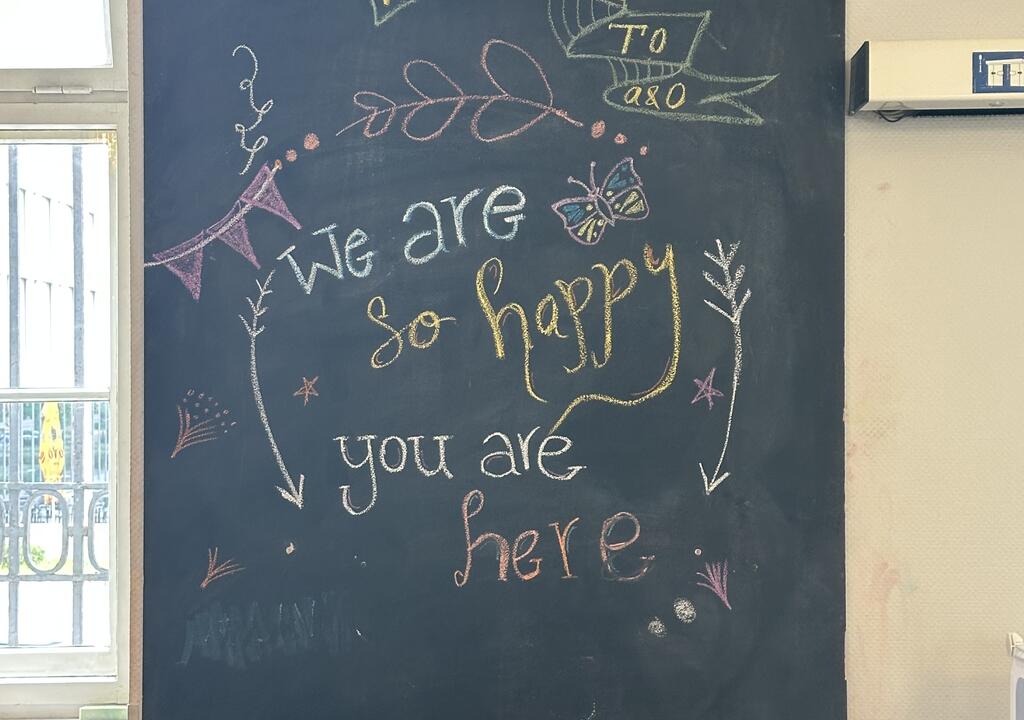 TO
a&O
We are
so happy
you are
here